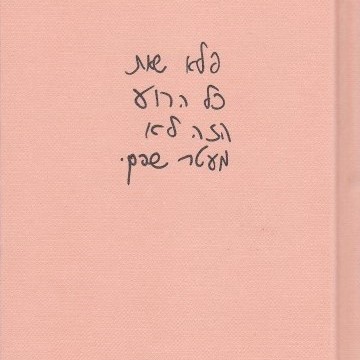 פלא שאת
כל הרוע
הזה לא
מעטר שפם.